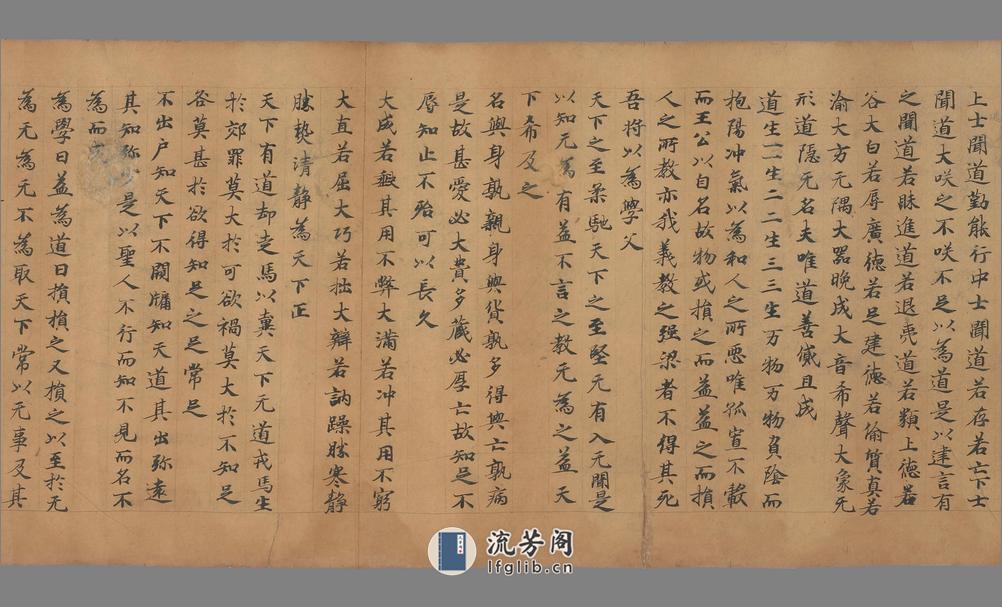 上士聞道勤能行中士聞道若存若亡下士
聞道大咲之不咲不足以為道是以建言有
之聞道若昧進道若退夷道若類上德若
谷大白若辱廣德若足建德若偷質真若
渝大方无隅大器晚成大音希聲大象无
形道隱无名夫唯道善貸且成
道生一一生二二生三三生万物万物負陰而
抱陽冲氣以為和人之所惡唯孤寡不轂
而王公以自名故物或損之而益益之而損
人之所教亦我義教之强梁者不得其死
吾将以為學父
天下之至柔馳天下之至堅无有入无聞是
以知无為有益不言之教无為之益天
下希及之
名與身孰親身與貨孰多得與亡孰病
是故甚愛必大費多藏必厚亡故知足不
辱知止不殆可以長久
大成若缺其用不弊大滿若冲其用不窮
大直若屈大巧若拙大辯若訥躁勝寒静
勝熱清静為天下正
天下有道却走馬以糞天下无道戎馬生
於郊罪莫大於可欲禍莫大於不知足
咎莫甚於欲得知足之足常足
不出户知天下不闚牖知天道其出弥遠
其知弥少是以聖人不行而知不見而名不
為而
為學日益為道日損損之又損之以至於无
為无為无不為取天下常以无事及其
流芳阁
lfglib.cn